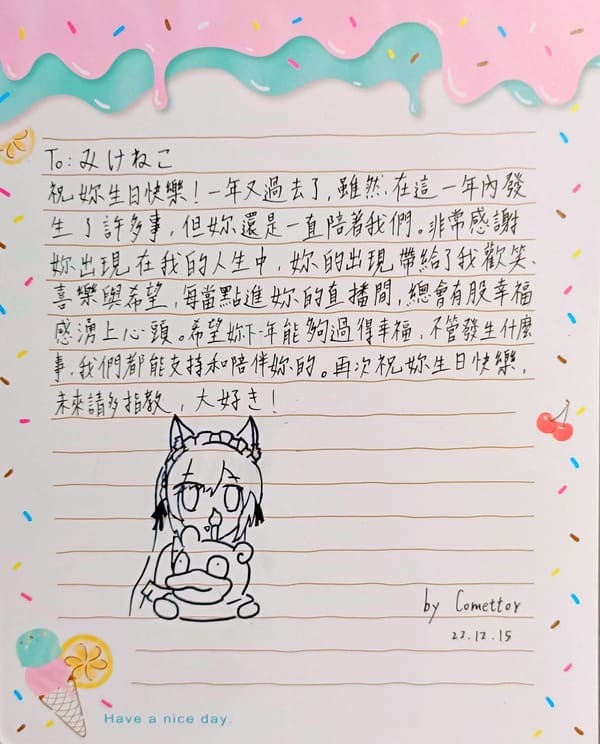 To: みけねこ
祝妳生日快樂！一年又過去了，雖然在這一年內發
生了許多事，但妳還是一直陪著我們。非常感謝
妳出現在我的人生中，妳的出現帶給了我歡笑、
喜樂與希望，每當點進妳的直播間，總會有股幸福
感湧上心頭。希望妳下一年能夠過得幸福，不管發生什麼
事，我們都能支持和陪伴妳的。再次祝妳生日快樂，
未來請多指教，大好き！
by Comettor
22.12.15
Have a nice day.